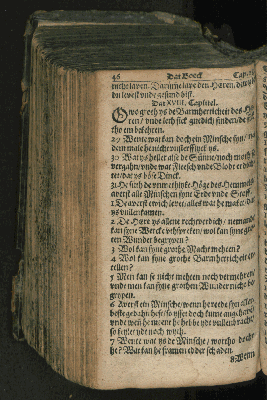 46 Dat Boeck Cap.
nicht lauen. Darumme laue den Heren, 
du leuest vnde gesund bist.
Dat XVIII. Capittel.
O wo groth ys de Barmherticheit des He
ren / vnde leth sick gnedich finden / de 
tho em bekehren.
Wente wat kan doch ein Minsche syn / 
dem male he nicht vnsterfflick ys.
30 Wat ys heller alse de Sünne / noch moth 
vergahn / vnde wat Fleesch vnde Blodt 
dat ys böse Dinck.
auerst alle Minschen syn Erde vnde 
1 De auerst ewich leuet / alles wat he maket 
ys vullenkamen.
2 De Here ys allene rechtverdich / nemandt
kan syne Wercke vthspreken / wol kan syne 
ten Wunder begrypen?
3 Wol kan syne grothe Macht methen?
4 Wol kan syne grothe Barmherticheit 
tellen?
5 Men kan se nicht methen noch vermehren /
vnde men kan syne grothen Wunder nicht be
grypen.
6 Auerst ein Minsche / wenn he rede syn 
beste gedahn hefft / so ys ydt noch kume angehauen /
vnde wen he menet he hebbe ydt vullendracht /
so feylet ydt noch wyth.
7 Wente wat ys de Minsche / wortho docht
he? Wat kan he framen edder schaden
8 Wenn